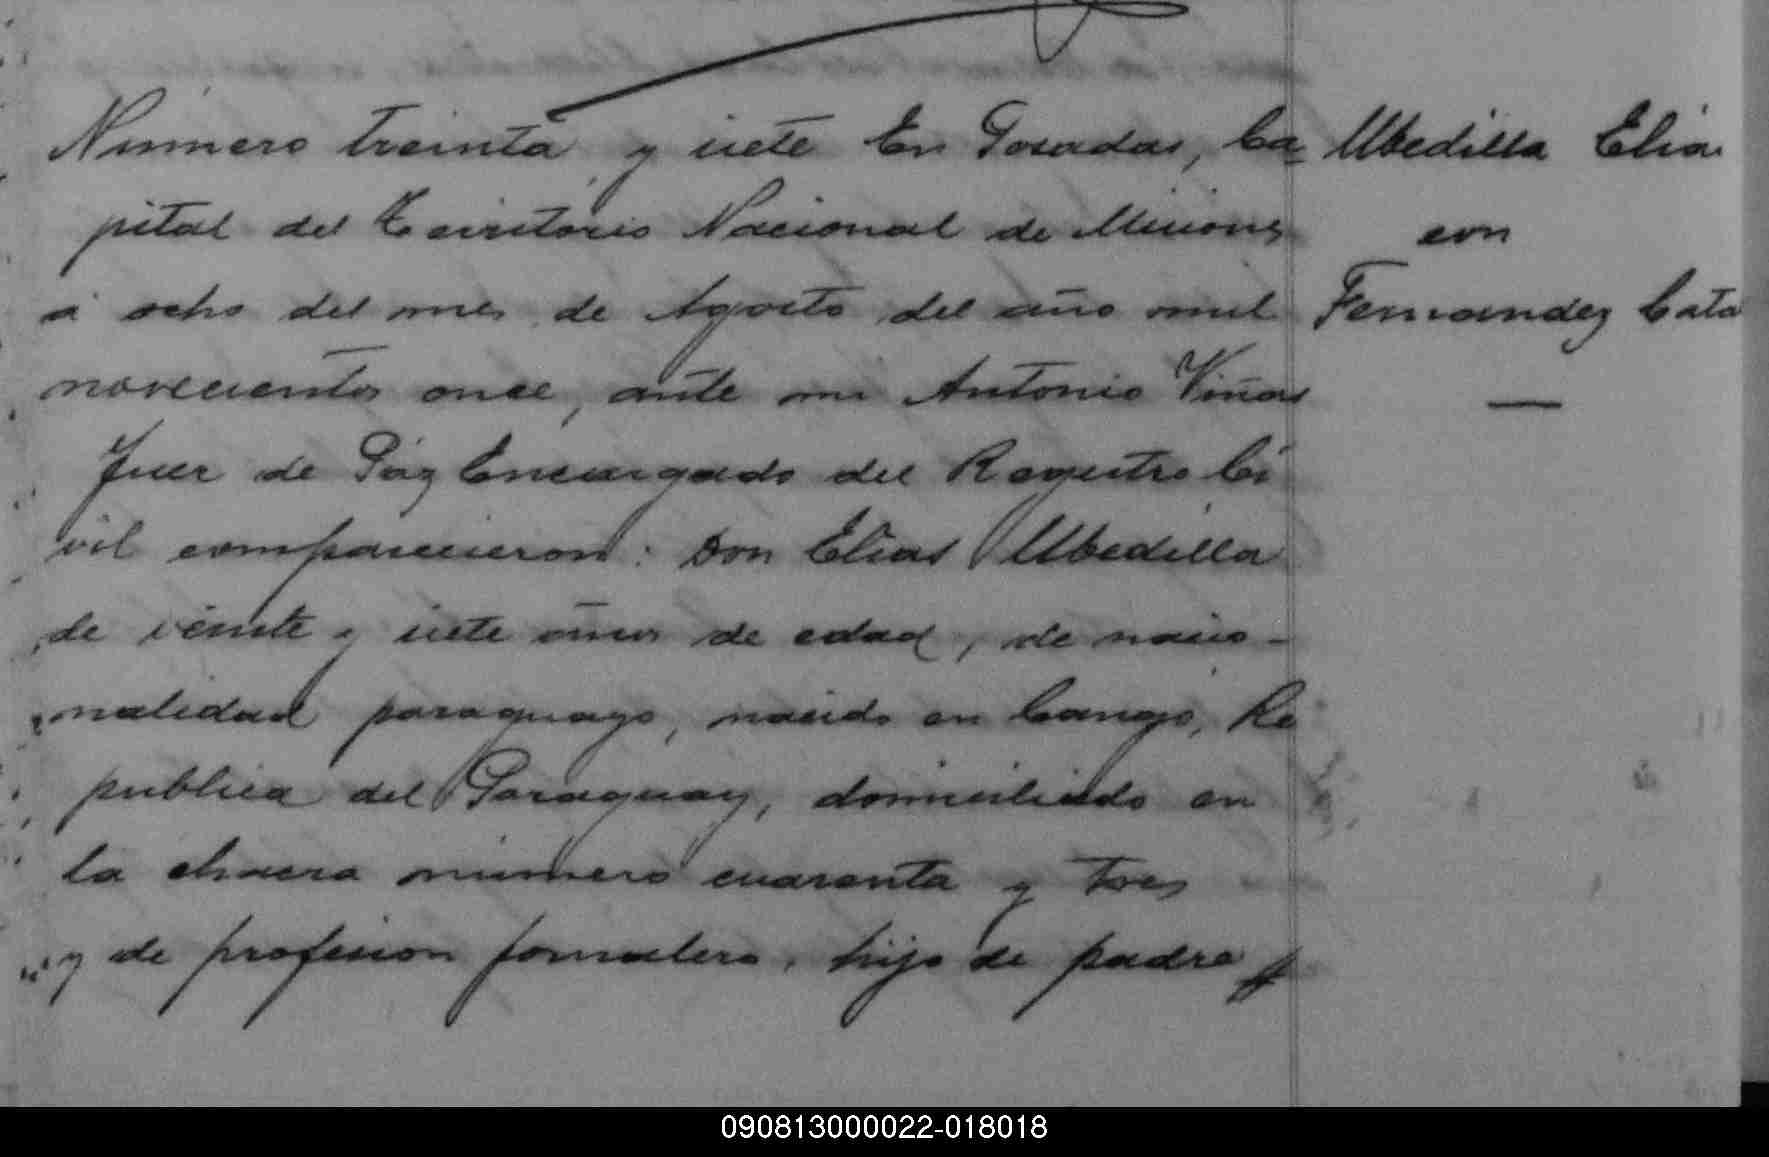 Número treinta y siete En Posadas, Ca
pital del Territorio Nacional de Misiones
á ocho del mes de Agosto del año mil
novecientos once, ante mi Antonio Viñas
Juez de Páz Encargado del Registro Ci
vil comparecieron: Don Elias Ubedilla
de veinte y siete años de edad, de nacio-
nalidad paraguayo, nacido en Cangó, Re
publica del Paraguay, domiciliado en
la chacra número cuarenta y tres
y de profesion jornalero, hijo de padre
Ubedilla Elias
con
Fernandez Cata
090813000022-018018